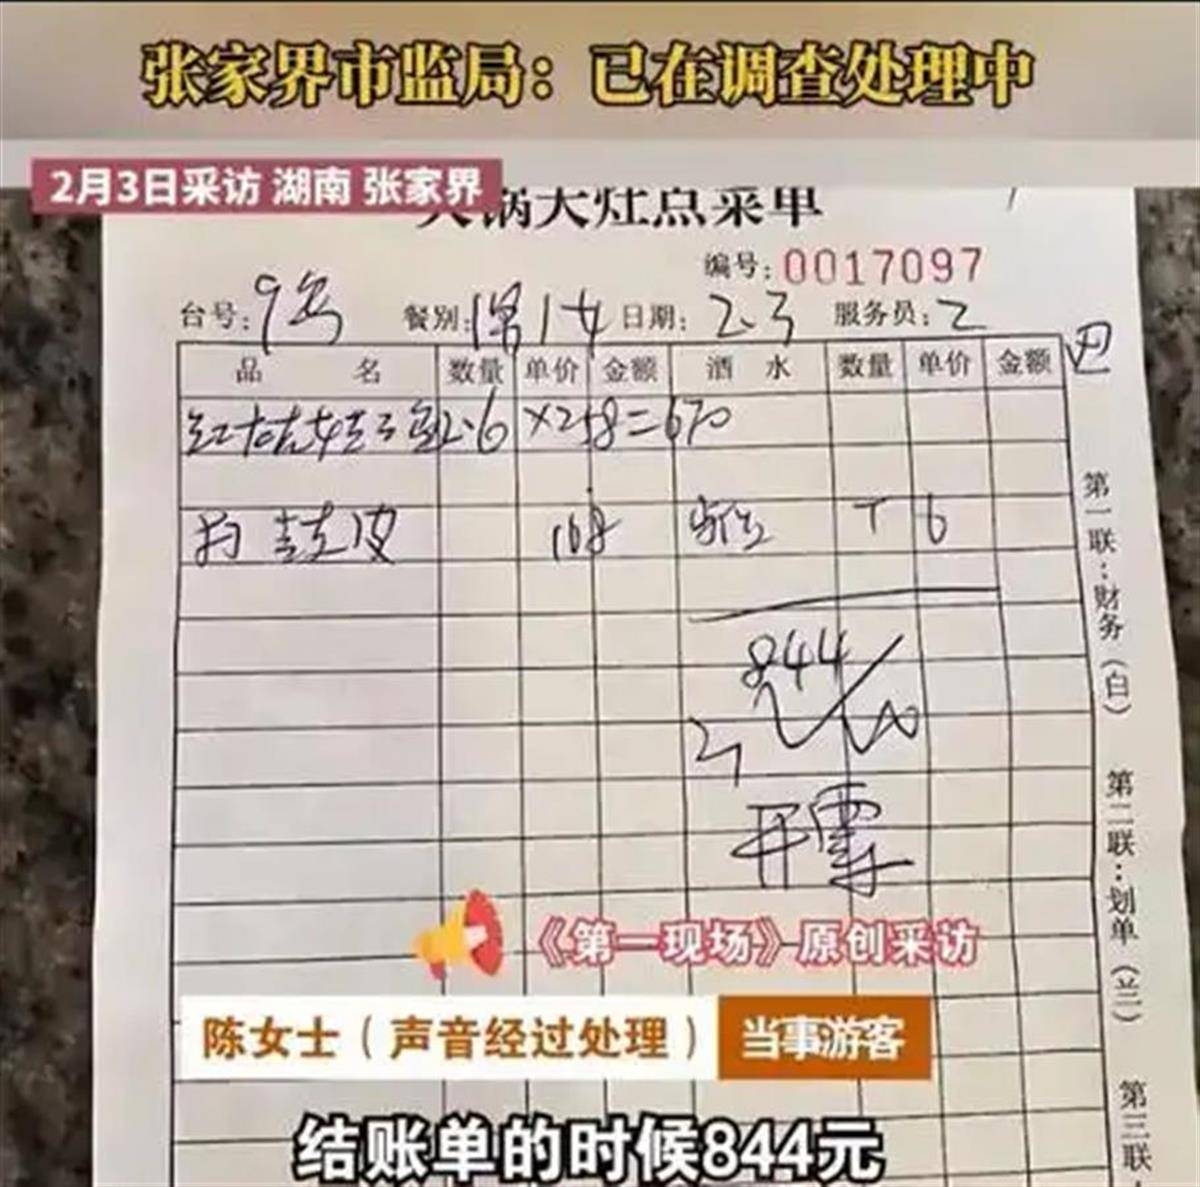 张家界市监局：已在调查处理中
2月3日采访 湖南 张家界
火锅大灶点菜单
编号：0017097
台号：9号 餐别： 日期：2.3 服务员：2
品 名 数量 单价 金额 酒 水 数量 单价 金额
2.6 ×258=670
皮 168 6
844
开票
第一联：财务（白） 第二联：划单（兰） 第三联
《第一现场》原创采访
陈女士（声音经过处理） 当事游客
结账单的时候844元